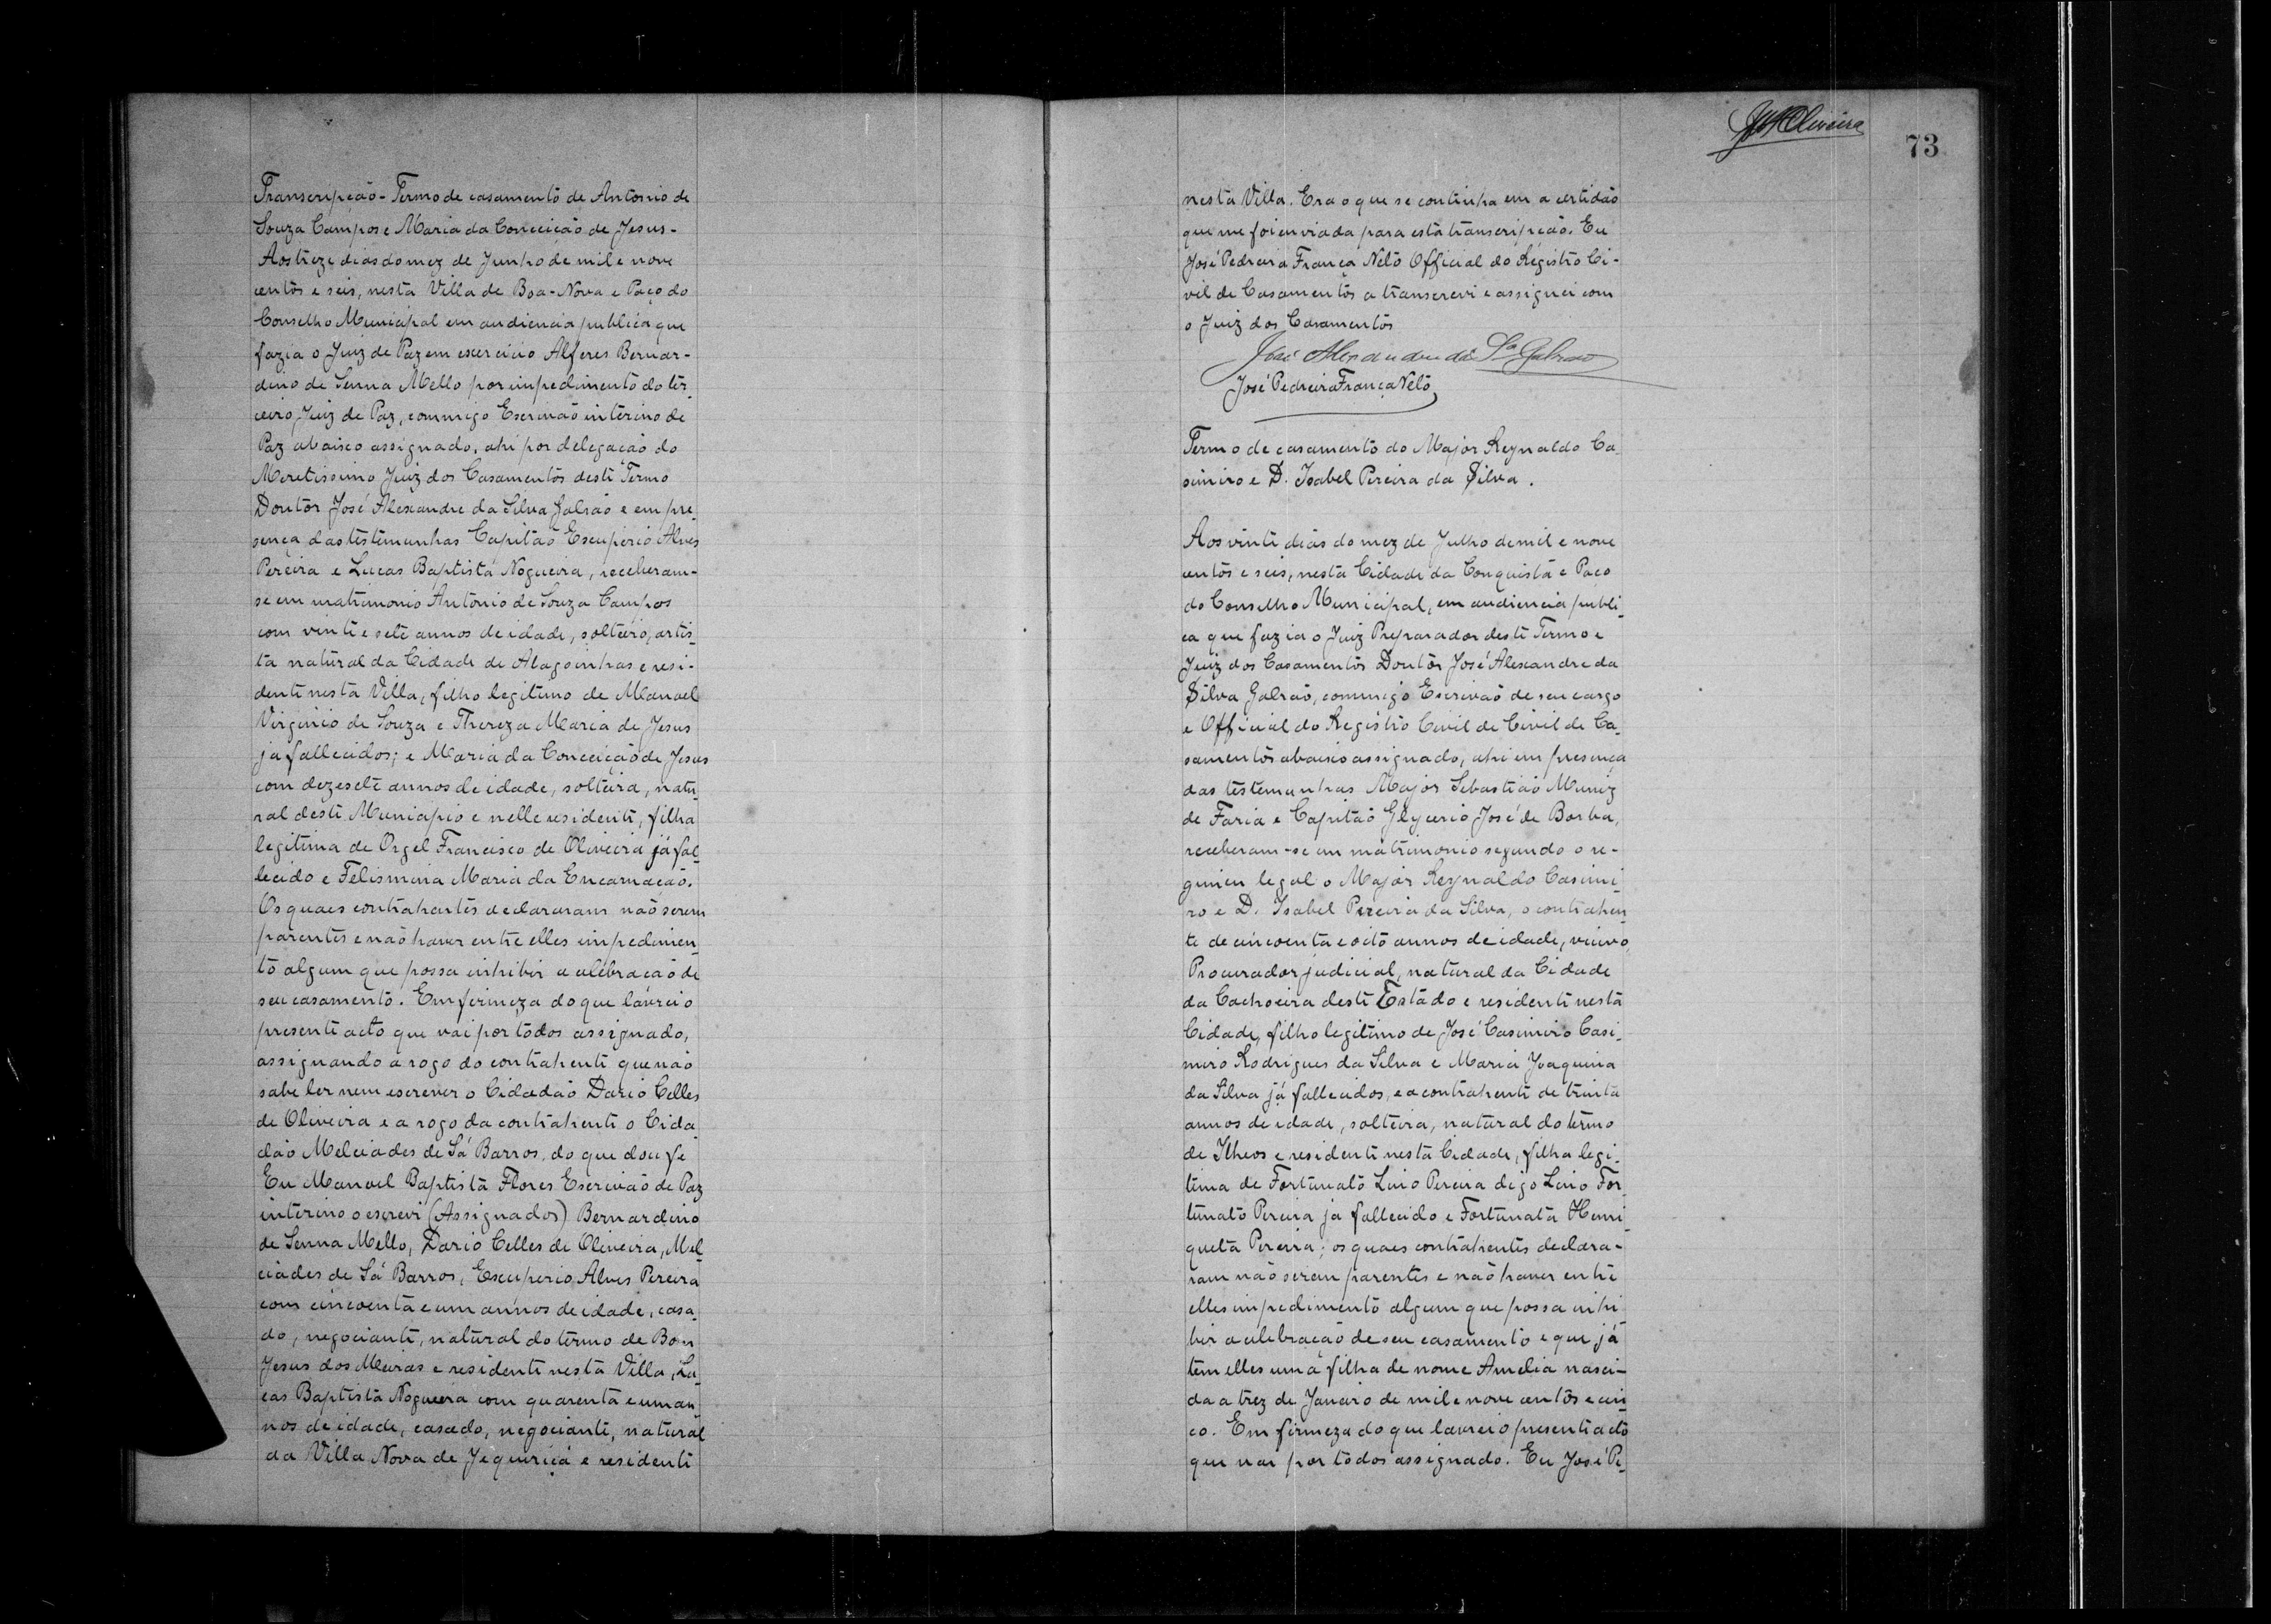 Transcripção - Termo de casamento de Antonio de
Souza Campos e Maria da Conceição de Jesus -
Aos treze dias do mez de Junho de mil e nove
centos e seis, nesta Villa de Boa-Nova e Paço do
Conselho Municipal em audiencia publica que
fazia o Juiz de Paz em exercicio Alferes Bernar-
dino de Senna Mello por impedimento do ter-
ceiro Juiz de Paz, commigo Escrivão interino de
Paz abaixo assignado, ahi por delegação do
Meretissimo Juiz dos Casamentos deste Termo
Doutor José Alexandre da Silva Galrão e em pre-
sença das testemunhas Capitão Escuperio Alves
Pereira e Lucas Baptista Nogueira, receberam-
se em matrimonio Antonio de Souza Campos
com vinte e sete annos de idade, solteiro, artis-
ta natural da Cidade de Alagoinhas e resi-
dente nesta Villa, filho legitimo de Manoel
Virginio de Souza e Thereza Maria de Jesus
ja fallecidos; e Maria da Conceição de Jesus
com dezesete annos de idade, solteira, natu-
ral deste Municipio e nelle residente, filha
legitima de Orgel Francisco de Oliveira já fal-
lecido e Felismina Maria da Encarnação.
Os quaes contrahentes declararam não serem
parentes e não haver entre elles impedimen-
to algum que possa inhibir a celebração de
seu casamento. Em firmeza do que lavrei o
presente acto que vai por todos assignado,
assignando a rogo do contrahente que não
sabe ler nem escrever o Cidadão Dario Celles
de Oliveira e a rogo da contrahente o Cida-
dão Melciades de Sá Barros, do que dou fe
Eu Manoel Baptista Flores Escrivão de Paz
interino o escrevi (Assignados) Bernardino
de Senna Mello, Dario Celles de Oliveira, Mel-
ciades de Sá Barros, Escuperio Alves Pereira
com cincoenta e um annos de idade, casa-
do, negociante, natural do termo de Bom
Jesus dos Meiras e residente nesta Villa, Lu-
cas Baptista Nogueira com quarenta e um an-
nos de idade, casado, negociante, natural
da Villa Nova de Jequiriçá e residente
JAOliveira
73
nesta Villa. Era o que se continha em a certidão
que me foi enviada para esta transcripção. Eu
José Pedreira França Neto Official do Registro Ci-
vil de Casamentos a transcrevi e assignei com
o Juiz dos Casamentos
José Alexandre da Sª Galrao
José Pedreira França Neto
Termo de casamento do Major Reynaldo Ca-
simiro e D. Isabel Pereira da Silva.
Aos vinte dias do mez de Julho de mil e nove
centos e seis, nesta Cidade da Conquista e Paço
do Conselho Municipal, em audiencia publi-
ca que fazia o Juiz Preparador deste Termo e
Juiz dos Casamentos Doutor José Alexandre da
Silva Galrão, commigo Escrivão de seu cargo
e Official do Registro Civil de Civil de Ca-
samentos abaixo assignado, ahi em presença
das testemunhas Major Sebastião Muniz
de Faria e Capitão Glycerio José de Borba,
receberam-se em matrimonio segundo o re-
gimen legal o Major Reynaldo Casimi-
ro e D. Isabel Pereira da Silva, o contrahen-
te de cincoenta e oito annos de idade, viuvo,
Procurador judicial, natural da Cidade
da Cachoeira deste Estado e residente nesta
Cidade, filho legitimo de José Casimiro Casi-
miro Rodrigues da Silva e Maria Joaquina
da Silva já fallecidos, e a contrahente de trinta
annos de idade, solteira, natural do termo
de Ilheos e residente nesta Cidade, filha legi-
tima de Fortunato Lino Pereira digo Lino For-
tunato Pereira ja fallecido e Fortunata Henri-
queta Pereira; os quaes contrahentes declara-
ram não serem parentes e não haver entre
elles impedimento algum que possa inhi-
bir a celebração de seu casamento e que já
tem elles uma filha de nome Amelia nasci-
da a trez de Janeiro de mil e nove centos e cin-
co. Em firmeza do que lavrei o presente acto
que vai por todos assignado. Eu José Pe-